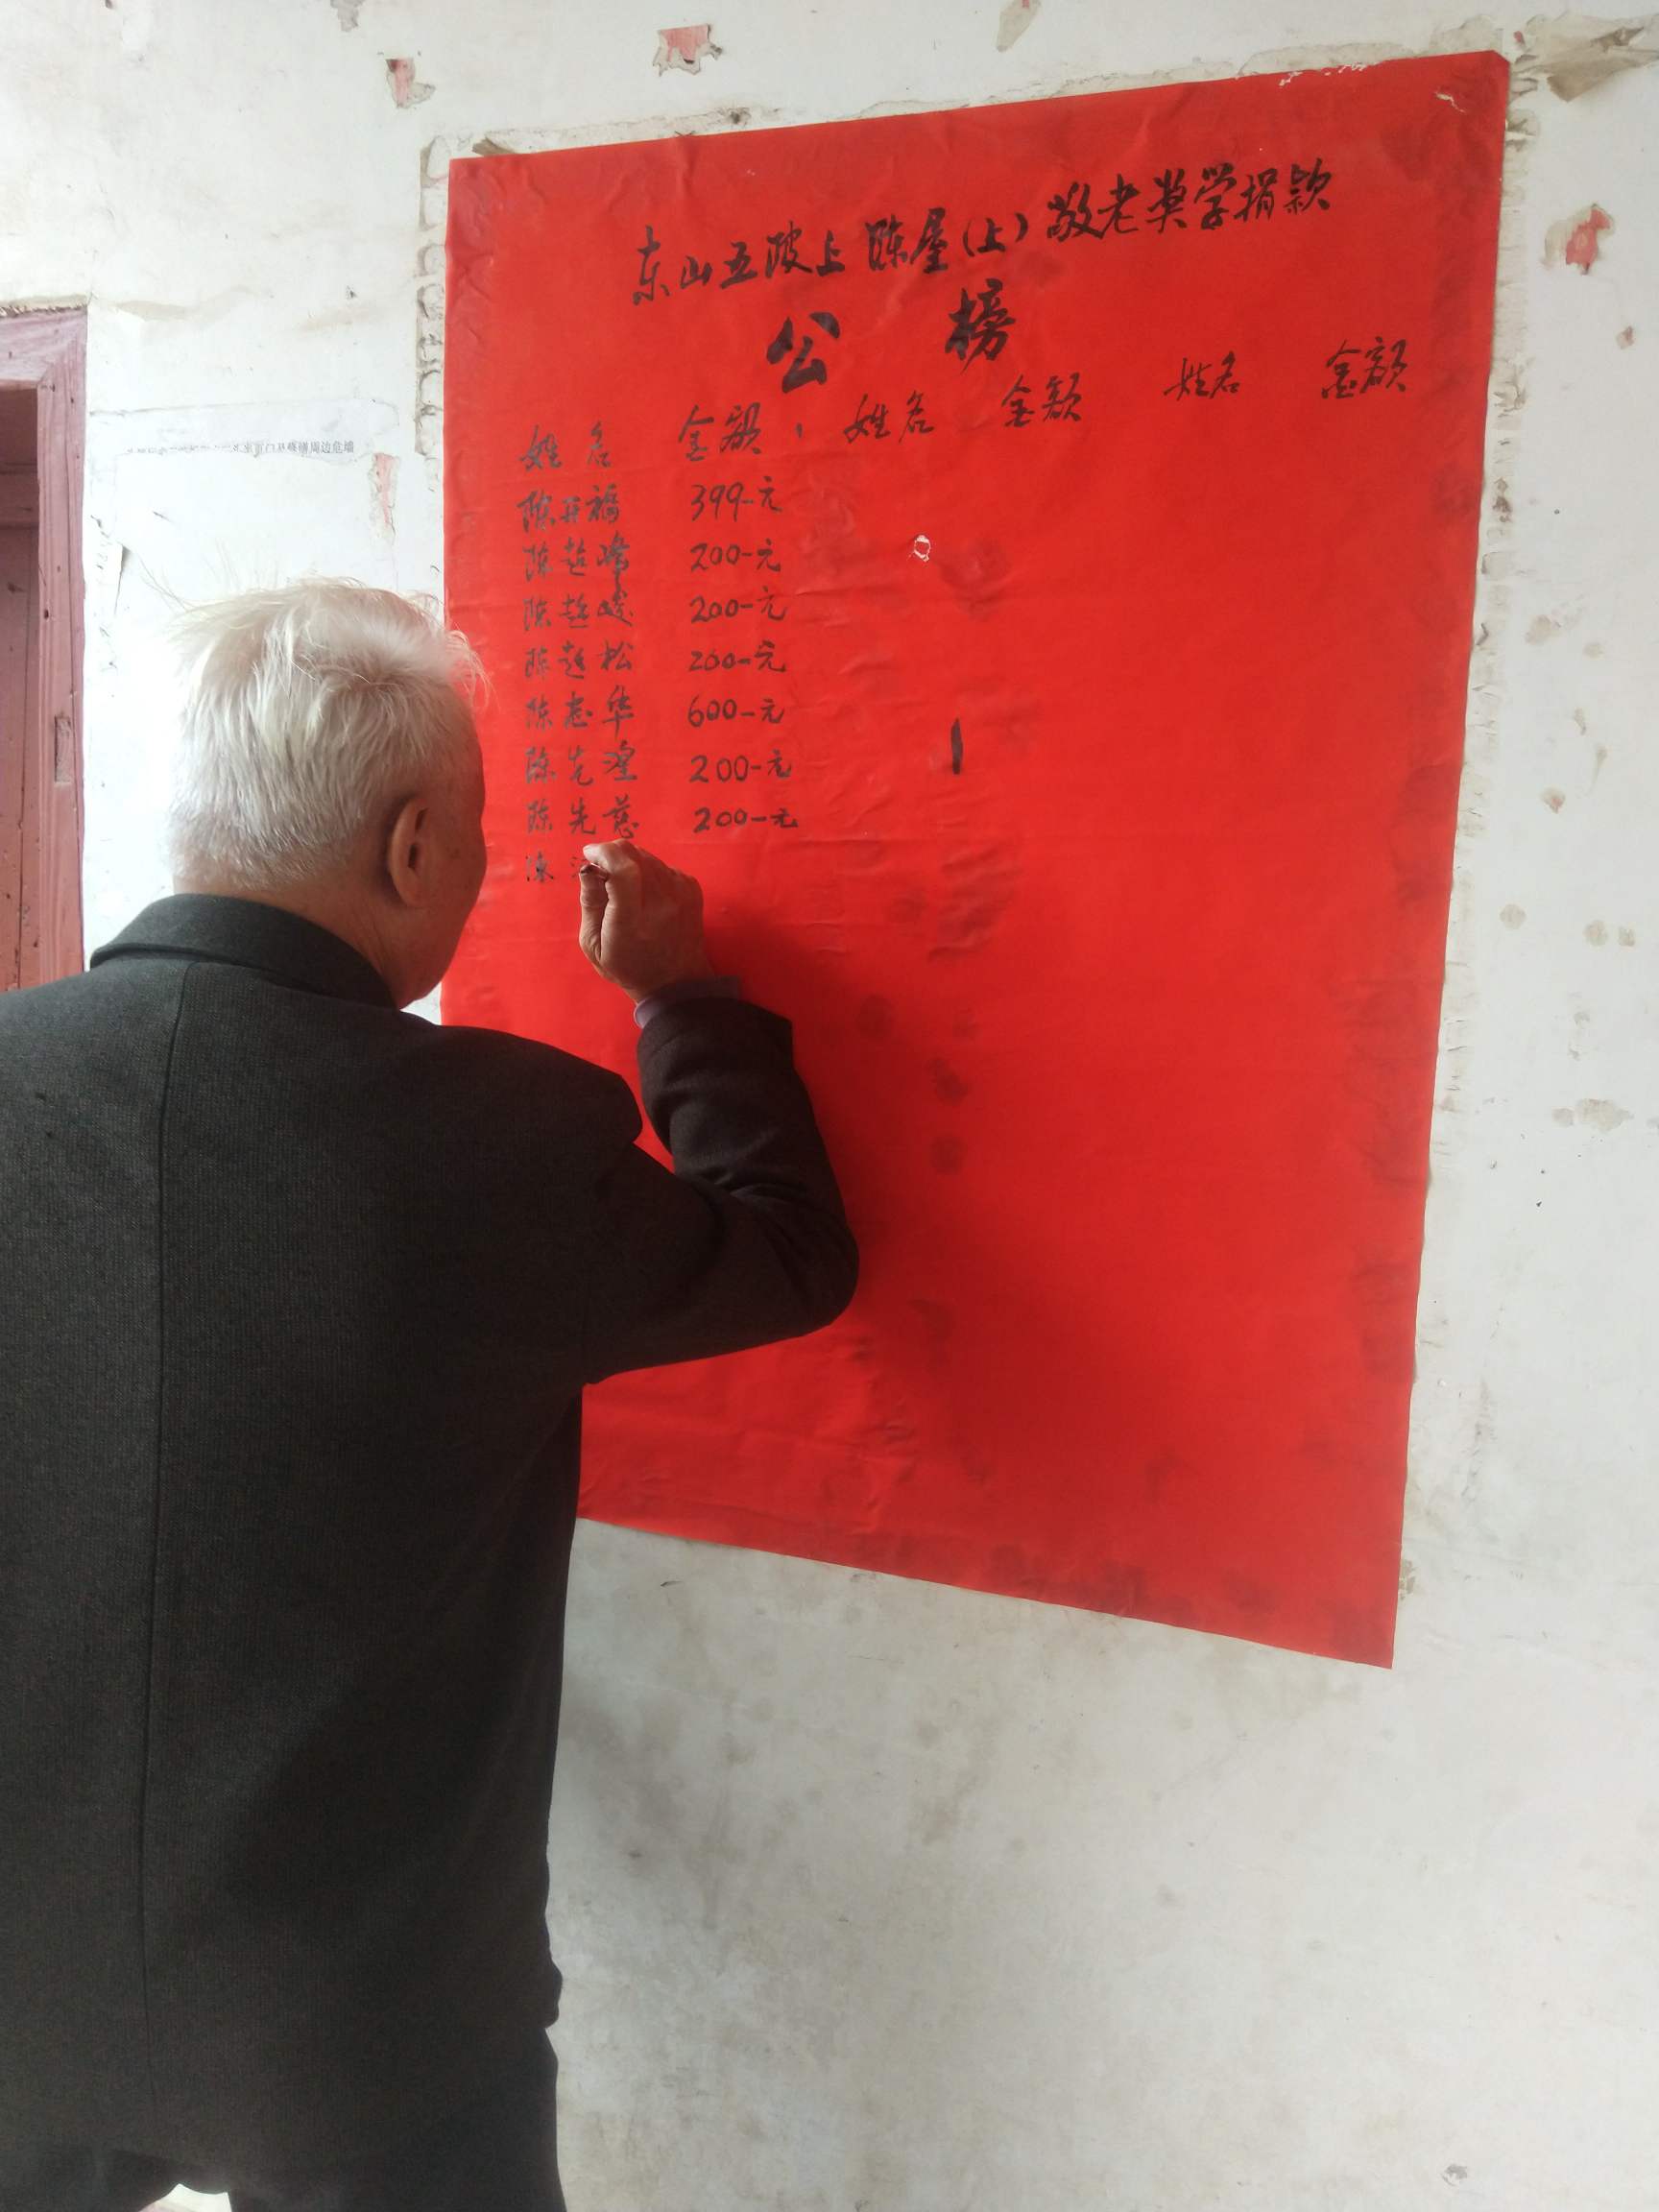 东山五陂上陈屋(上)敬老奖学捐款
公 榜
姓名 金额 姓名 金额 姓名 金额
陈开福 399-元
陈超峰 200-元
陈超峻 200-元
陈超松 200-元
陈志华 600-元
陈先湟 200-元
陈先慈 200-元
陈
周边危墙